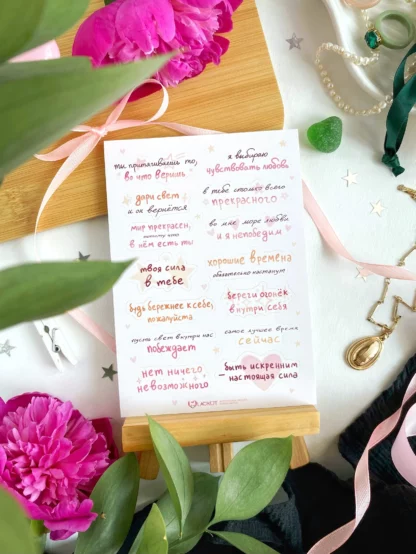 ты притягиваешь то,
во что веришь
дари свет
и он вернётся
мир прекрасен,
потому что
в нём есть ты
твоя сила
в тебе
будь бережнее к себе,
пожалуйста
пусть свет внутри нас
побеждает
нет ничего
невозможного
я выбираю
чувствовать любовь
в тебе столько всего
прекрасного
во мне море любви
и я непобедим
хорошие времена
обязательно настанут
береги огонёк
внутри себя
самое лучшее время
сейчас
быть искренним
— настоящая сила